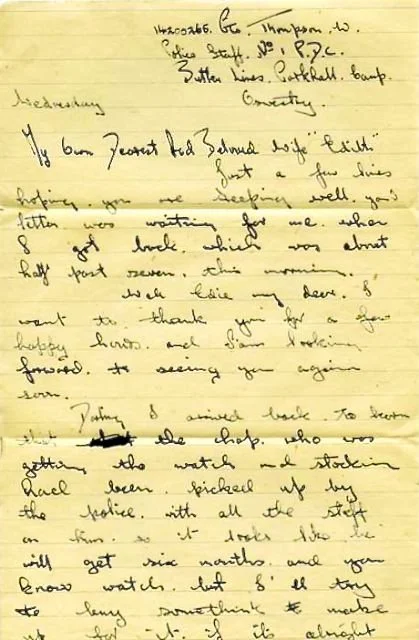 14200265. Pte. Thompson. W.
Police Staff. No 1 P.D.C.
Butler Lines. Parkhall. Camp.
Oswestry.
Wednesday
My Own Dearest And Beloved Wife "Edith"
Just a few lines
hoping. you are keeping well. your
letter was waiting for me. when
I got back. which was about
half past seven. this morning.
Well Edie my dear. I
want to. thank you for a few
happy hours. and I am looking
forward. to seeing you again
soon.
Darling I arrived back. to learn
that the chap. who was
getting the watch and stocking
had been. picked up by
the police. with all the stuff
on him. so it looks like he
will get six months. and you
know watch. but I'll try
to buy somethink to make
up for it. if its alright